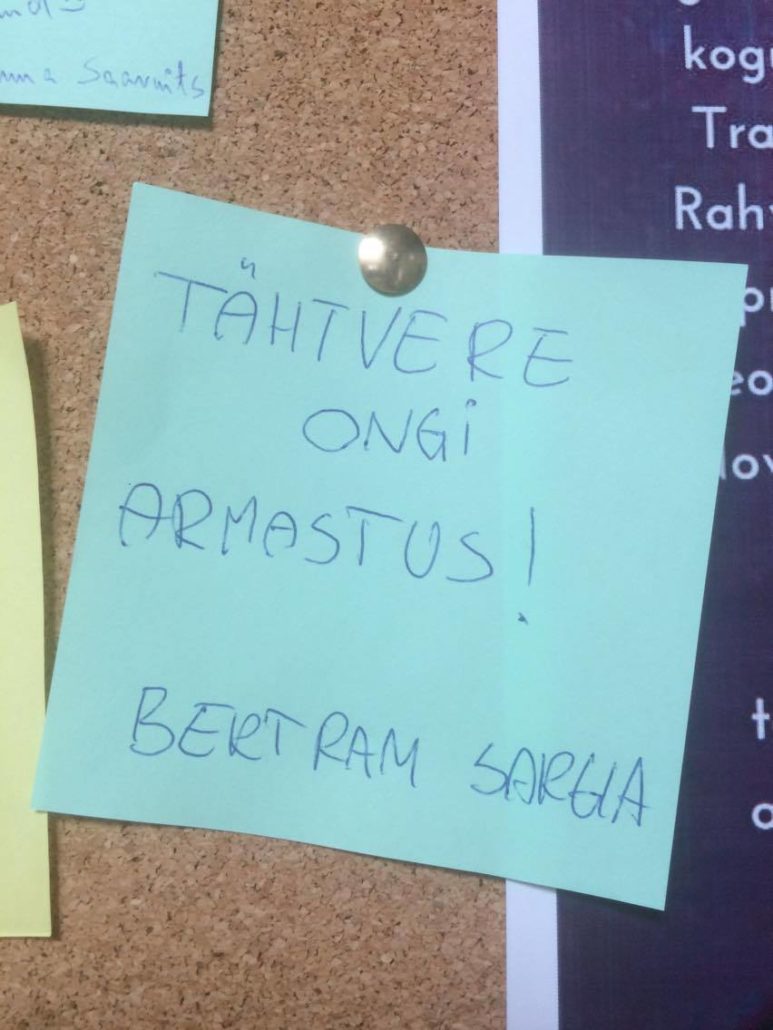 Saarnits
TÄHTVERE
ONGI
ARMASTUS!
BERTRAM SARGLA
kogu
Tra
Rah